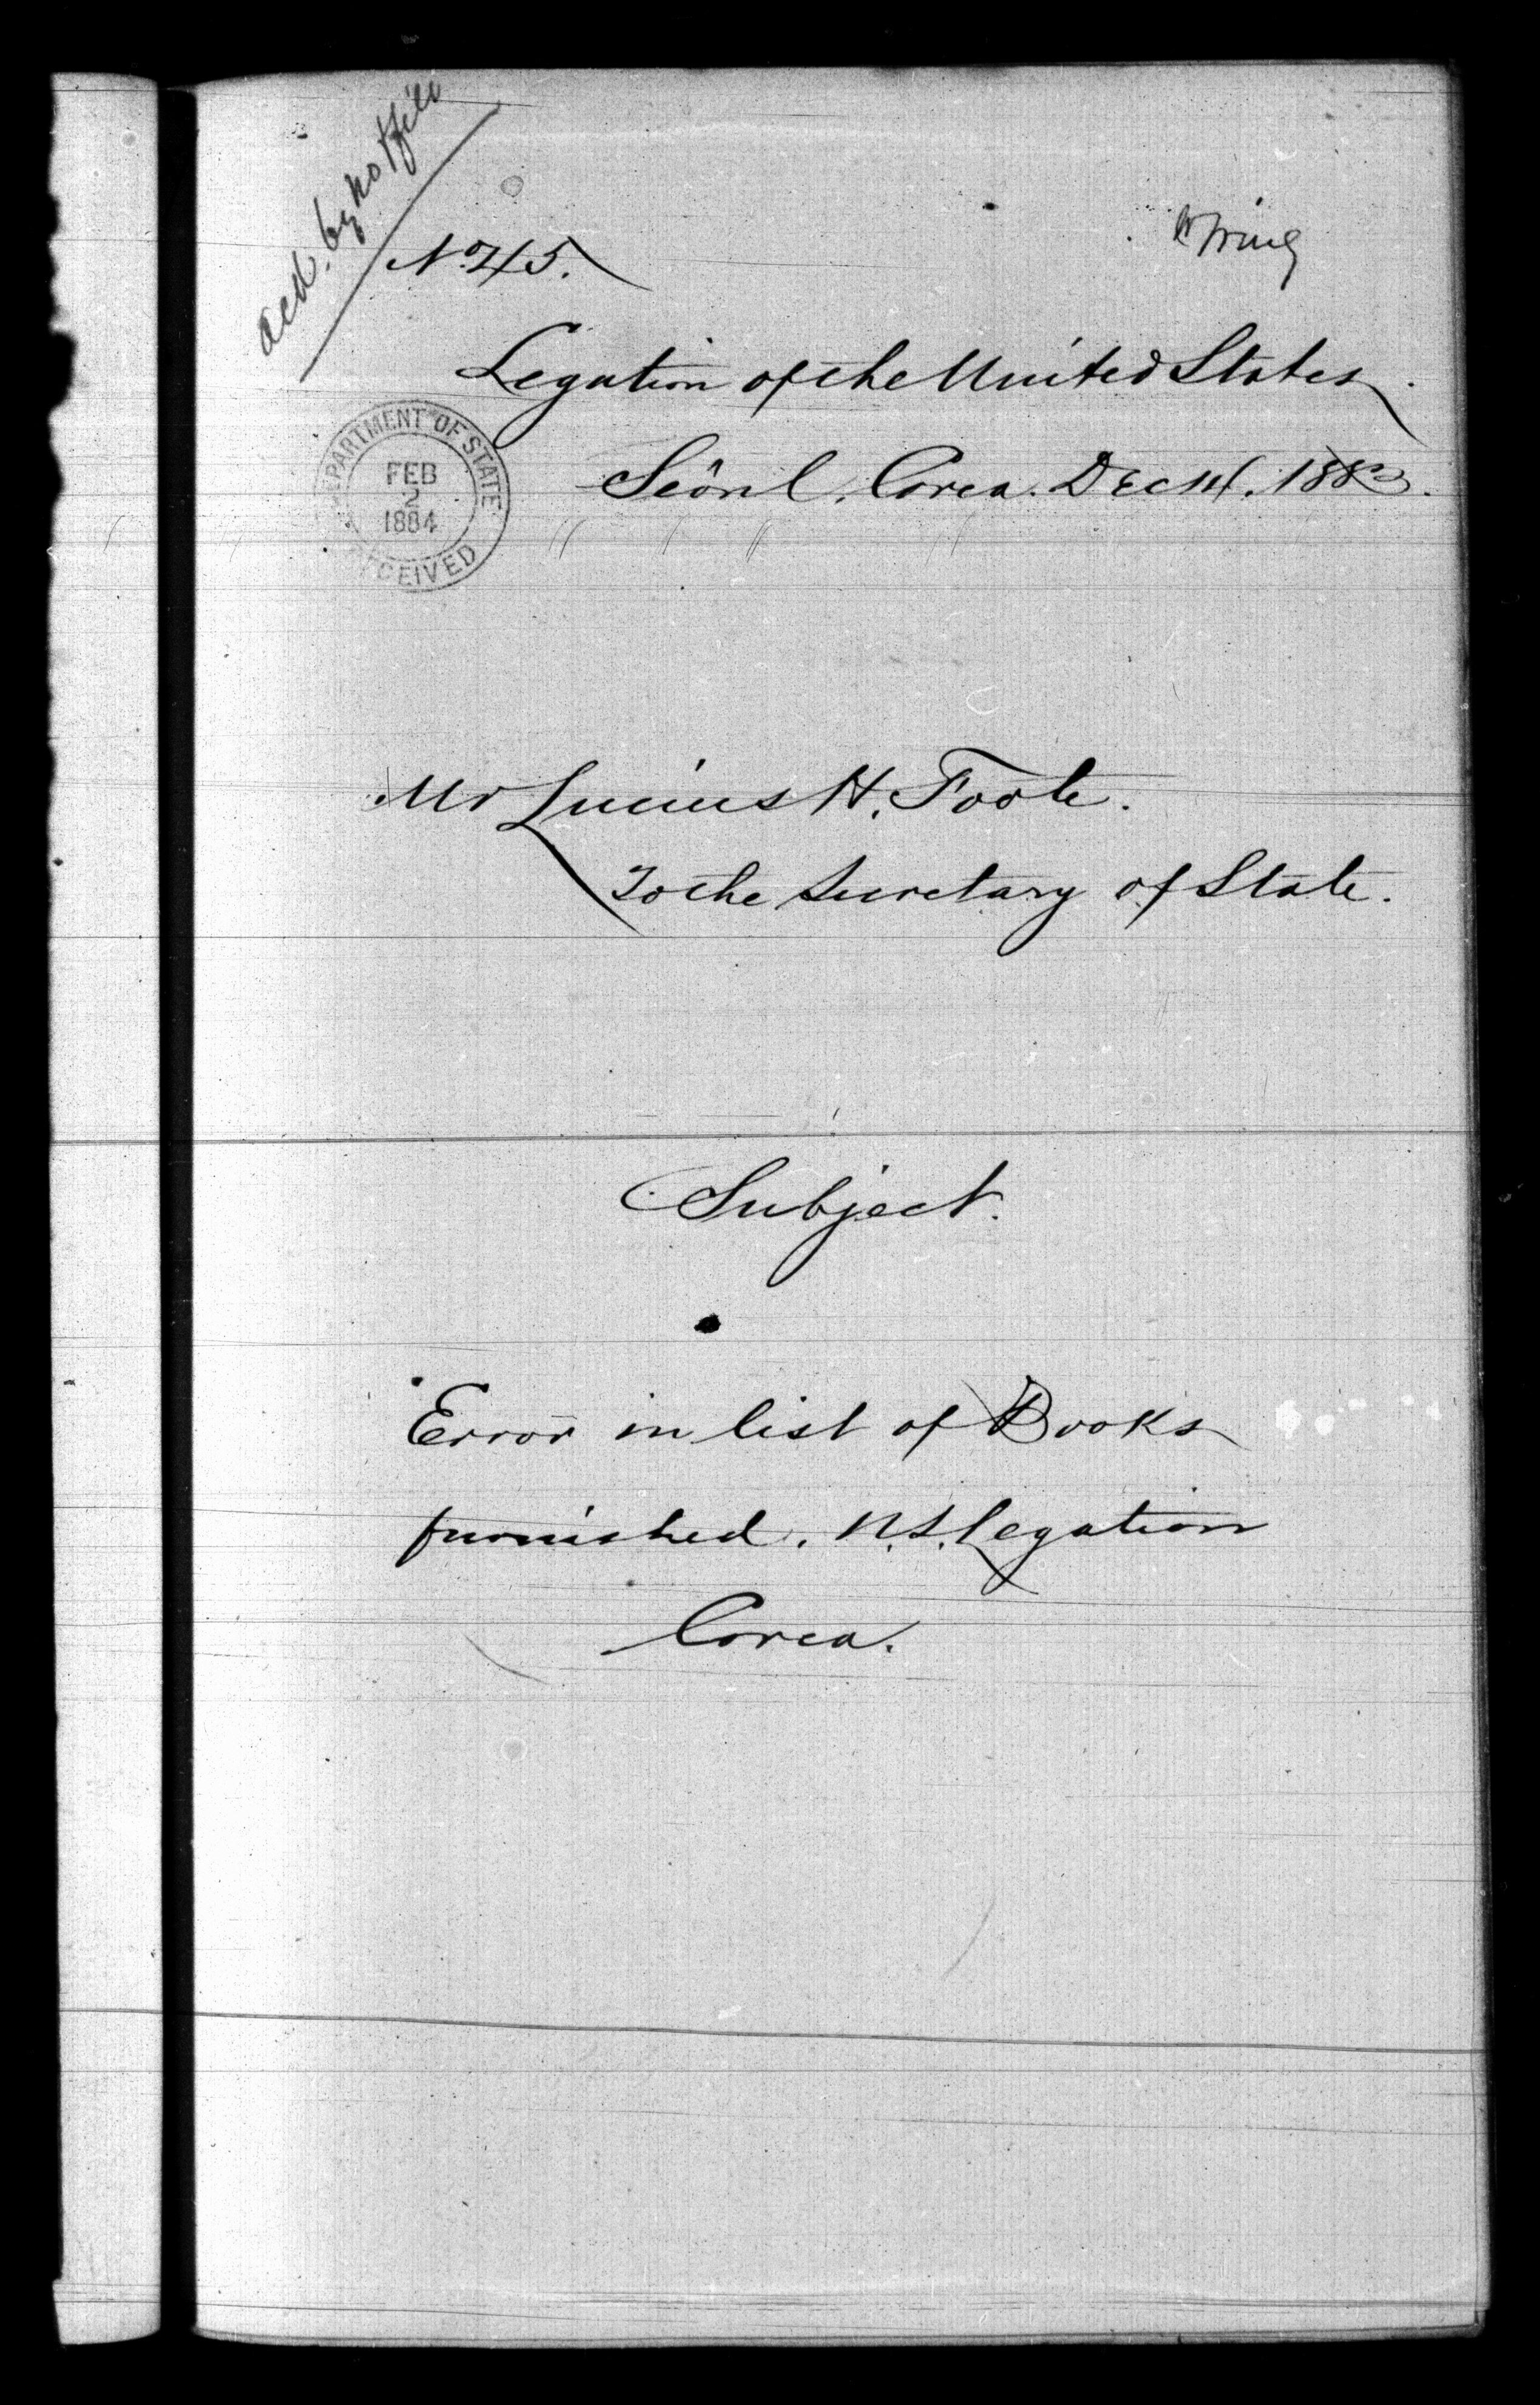 ack. by not file
No 45.
Legation of the United States.
Seôul, Corea. Dec 14. 1883.
DEPARTMENT OF STATE
FEB
2
1884
RECEIVED
Mr Lucius H. Foote.
To the Secretary of State.
Subject.
Error in list of Books
furnished. U.S. Legation
Corea.